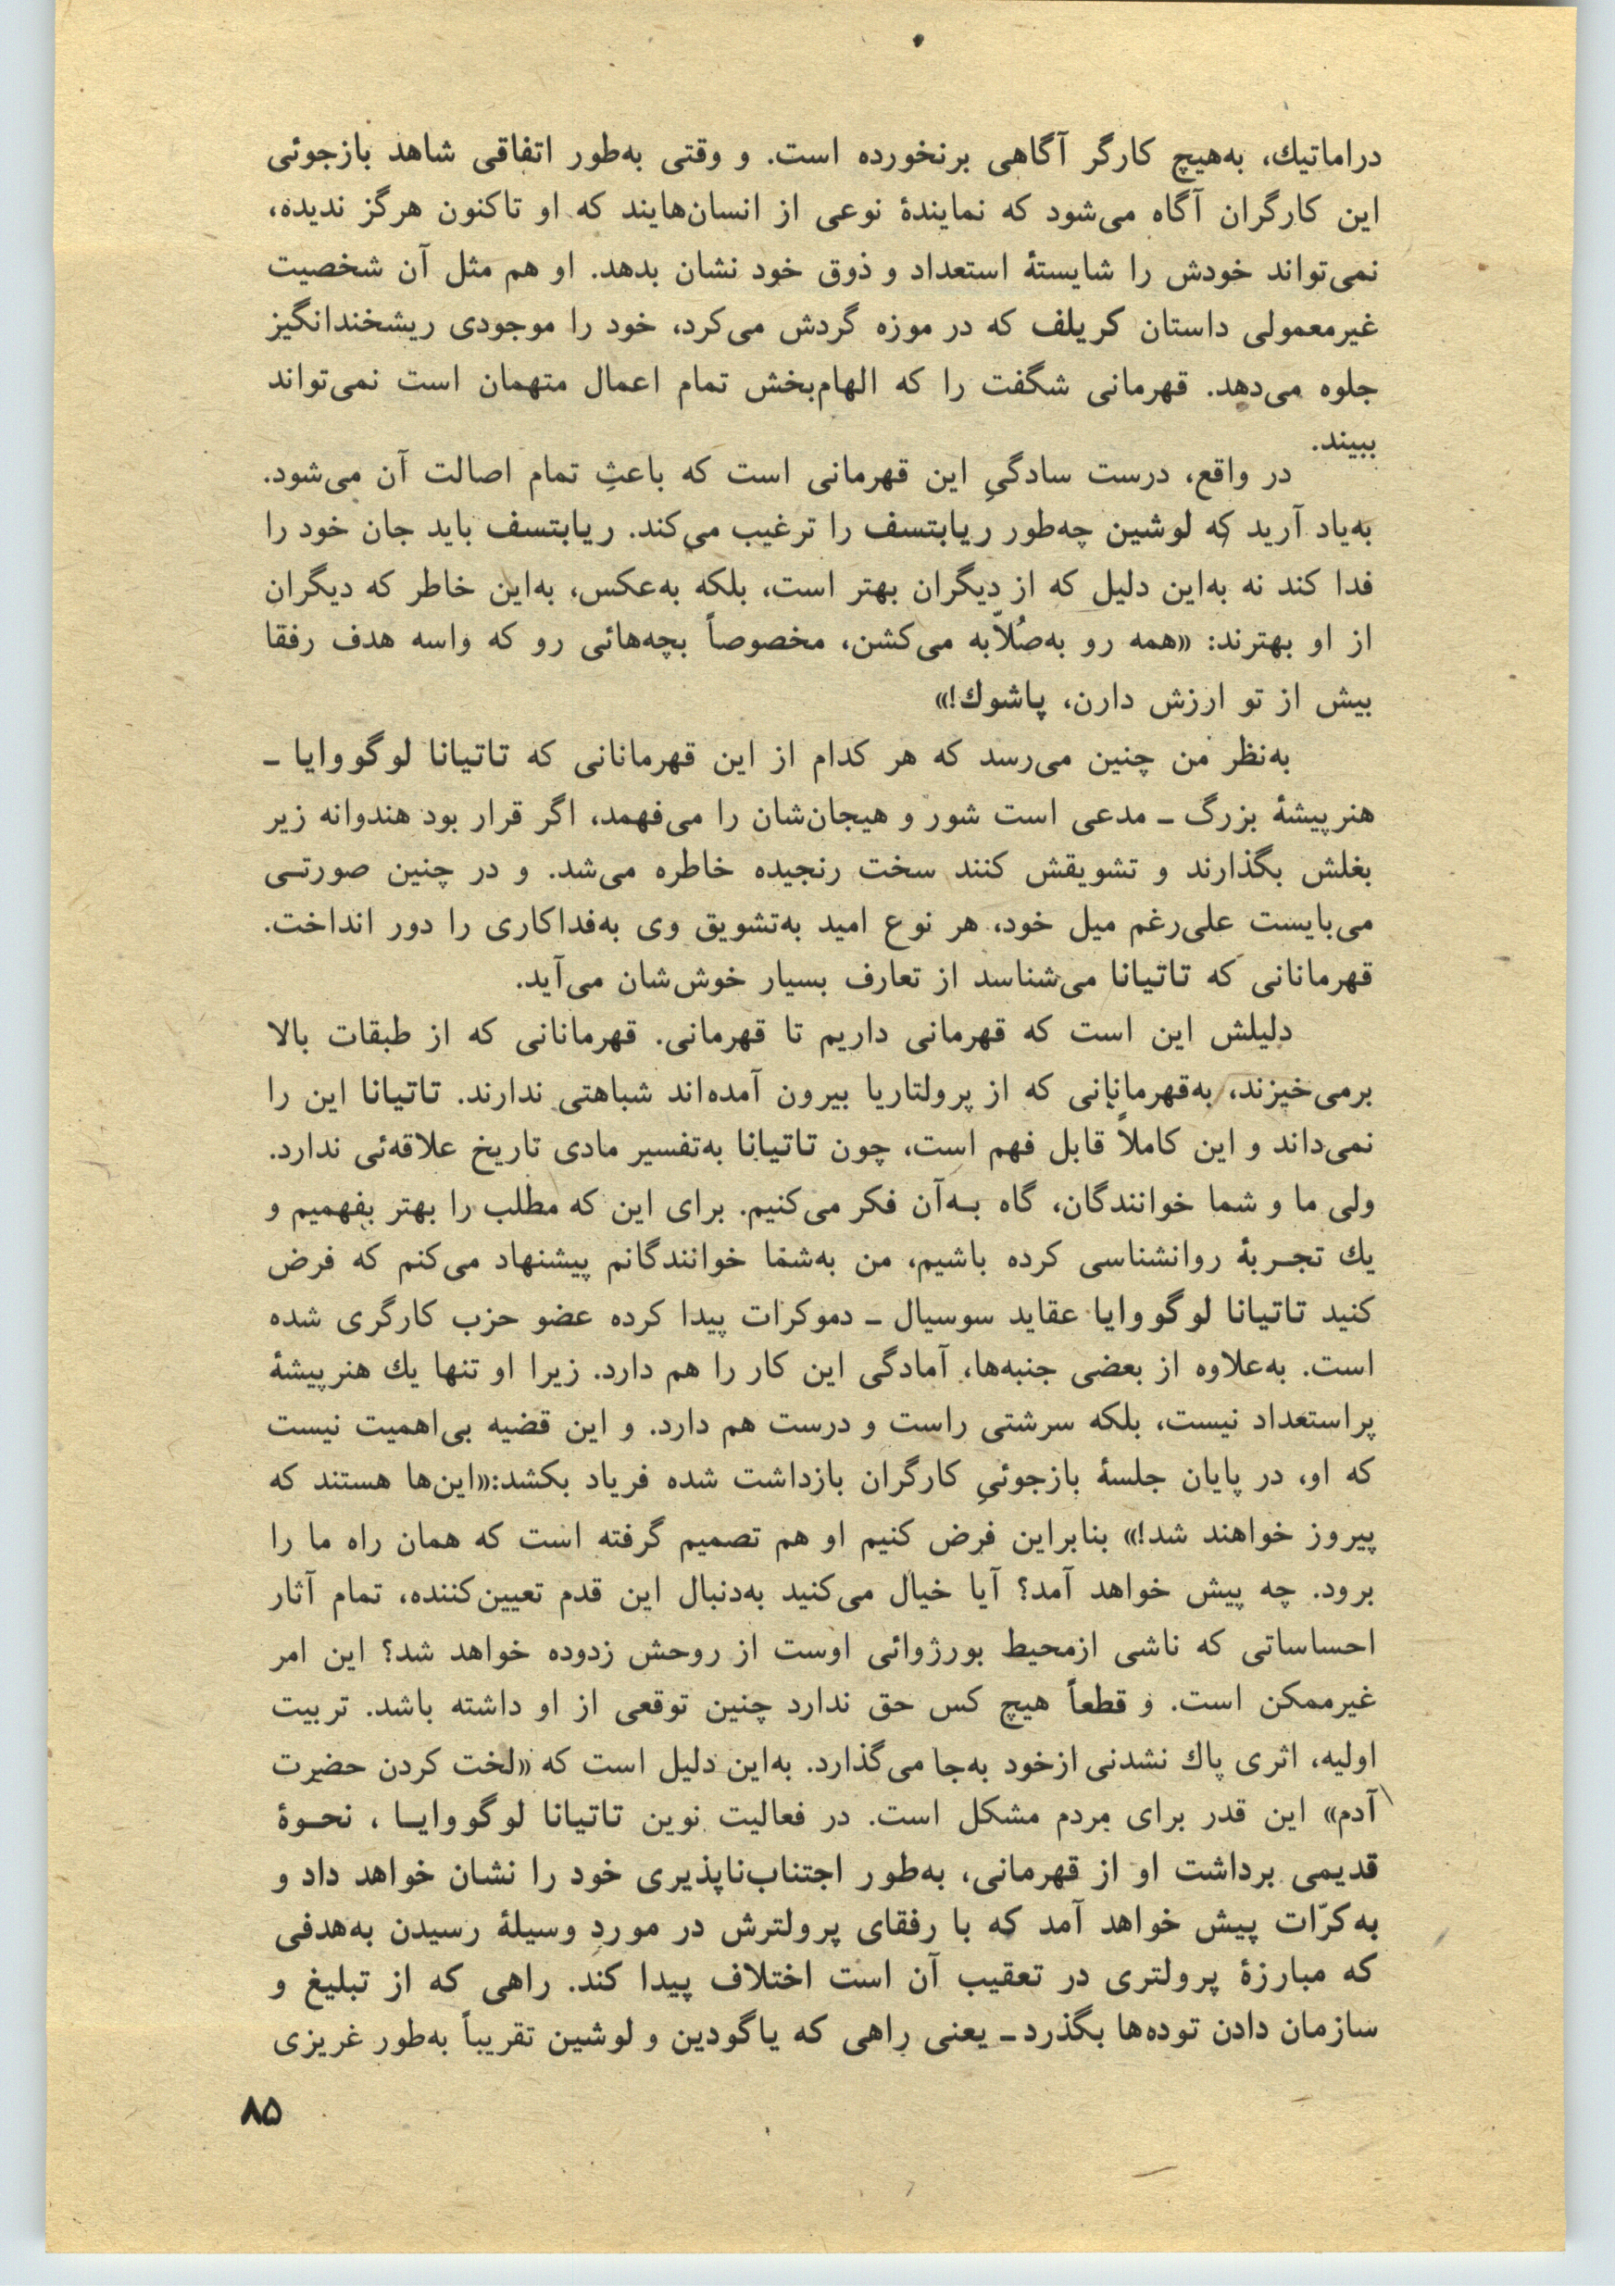 دراماتیك، به‌هیچ کارگر آگاهی برنخورده است. و وقتی به‌طور اتفاقی شاهد بازجوئی
این کارگران آگاه می‌شود که نمایندهٔ نوعی از انسان‌هایند که او تاکنون هرگز ندیده،
نمی‌تواند خودش را شایستهٔ استعداد و ذوق خود نشان بدهد. او هم مثل آن شخصیت
غیرمعمولی داستان کریلف که در موزه گردش می‌کرد، خود را موجودی ریشخندانگیز
جلوه می‌دهد. قهرمانی شگفت را که الهام‌بخش تمام اعمال متهمان است نمی‌تواند
ببیند.
در واقع، درست سادگیِ این قهرمانی است که باعثِ تمام اصالت آن می‌شود.
به‌یاد آرید که لوشین چه‌طور ریابتسف را ترغیب می‌کند. ریابتسف باید جان خود را
فدا کند نه به‌این دلیل که از دیگران بهتر است، بلکه به‌عکس، به‌این خاطر که دیگران
از او بهترند: «همه رو به‌صُلاّبه می‌کشن، مخصوصاً بچه‌هائی رو که واسه هدف رفقا
بیش از تو ارزش دارن، پاشوك!»
به‌نظر من چنین می‌رسد که هر کدام از این قهرمانانی که تاتیانا لوگووایا ـ
هنرپیشهٔ بزرگ ـ مدعی است شور و هیجان‌شان را می‌فهمد، اگر قرار بود هندوانه زیر
بغلش بگذارند و تشویقش کنند سخت رنجیده خاطره می‌شد. و در چنین صورتـی
می‌بایست علی‌رغم میل خود، هر نوع امید به‌تشویق وی به‌فداکاری را دور انداخت.
قهرمانانی که تاتیانا می‌شناسد از تعارف بسیار خوش‌شان می‌آید.
دلیلش این است که قهرمانی داریم تا قهرمانی. قهرمانانی که از طبقات بالا
برمی‌خیزند، به‌قهرمانانی که از پرولتاریا بیرون آمده‌اند شباهتی ندارند. تاتیانا این را
نمی‌داند و این کاملاً قابل فهم است، چون تاتیانا به‌تفسیر مادی تاریخ علاقه‌ئی ندارد.
ولی ما و شما خوانندگان، گاه بـه‌آن فکر می‌کنیم. برای این که مطلب را بهتر بفهمیم و
یك تجـربهٔ روانشناسی کرده باشیم، من به‌شما خوانندگانم پیشنهاد می‌کنم که فرض
کنید تاتیانا لوگووایا عقاید سوسیال ـ دموکرات پیدا کرده عضو حزب کارگری شده
است. به‌علاوه از بعضی جنبه‌ها، آمادگی این کار را هم دارد. زیرا او تنها یك هنرپیشهٔ
پراستعداد نیست، بلکه سرشتی راست و درست هم دارد. و این قضیه بی‌اهمیت نیست
که او، در پایان جلسهٔ بازجوئیِ کارگران بازداشت شده فریاد بکشد:«این‌ها هستند که
پیروز خواهند شد!» بنابراین فرض کنیم او هم تصمیم گرفته است که همان راه ما را
برود. چه پیش خواهد آمد؟ آیا خیال می‌کنید به‌دنبال این قدم تعیین‌کننده، تمام آثار
احساساتی که ناشی ازمحیط بورژوائی اوست از روحش زدوده خواهد شد؟ این امر
غیرممکن است. و قطعاً هیچ کس حق ندارد چنین توقعی از او داشته باشد. تربیت
اولیه، اثری پاك نشدنی ازخود به‌جا می‌گذارد. به‌این دلیل است که «لخت کردن حضرت
آدم» این قدر برای مردم مشکل است. در فعالیت نوین تاتیانا لوگووایـا ، نحـوهٔ
قدیمی برداشت او از قهرمانی، به‌طور اجتناب‌ناپذیری خود را نشان خواهد داد و
به‌کرّات پیش خواهد آمد که با رفقای پرولترش در موردِ وسیلهٔ رسیدن به‌هدفی
که مبارزهٔ پرولتری در تعقیب آن است اختلاف پیدا کند. راهی که از تبلیغ و
سازمان دادن توده‌ها بگذرد ـ یعنی راهی که یاگودین و لوشین تقریباً به‌طور غریزی
۸۵